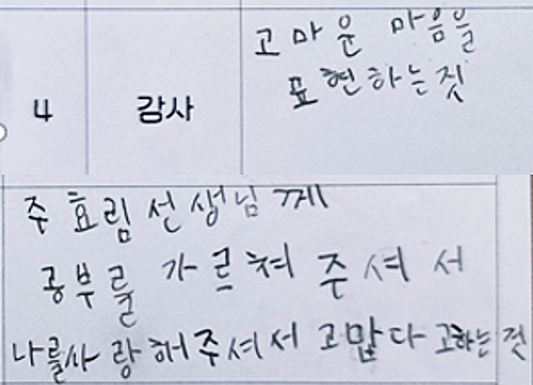 고마운 마음을
4 감사 표현하는 짓
주효림선생님께
공부를 가르쳐 주셔서
나를사랑해주셔서 고맙다 고하는 것